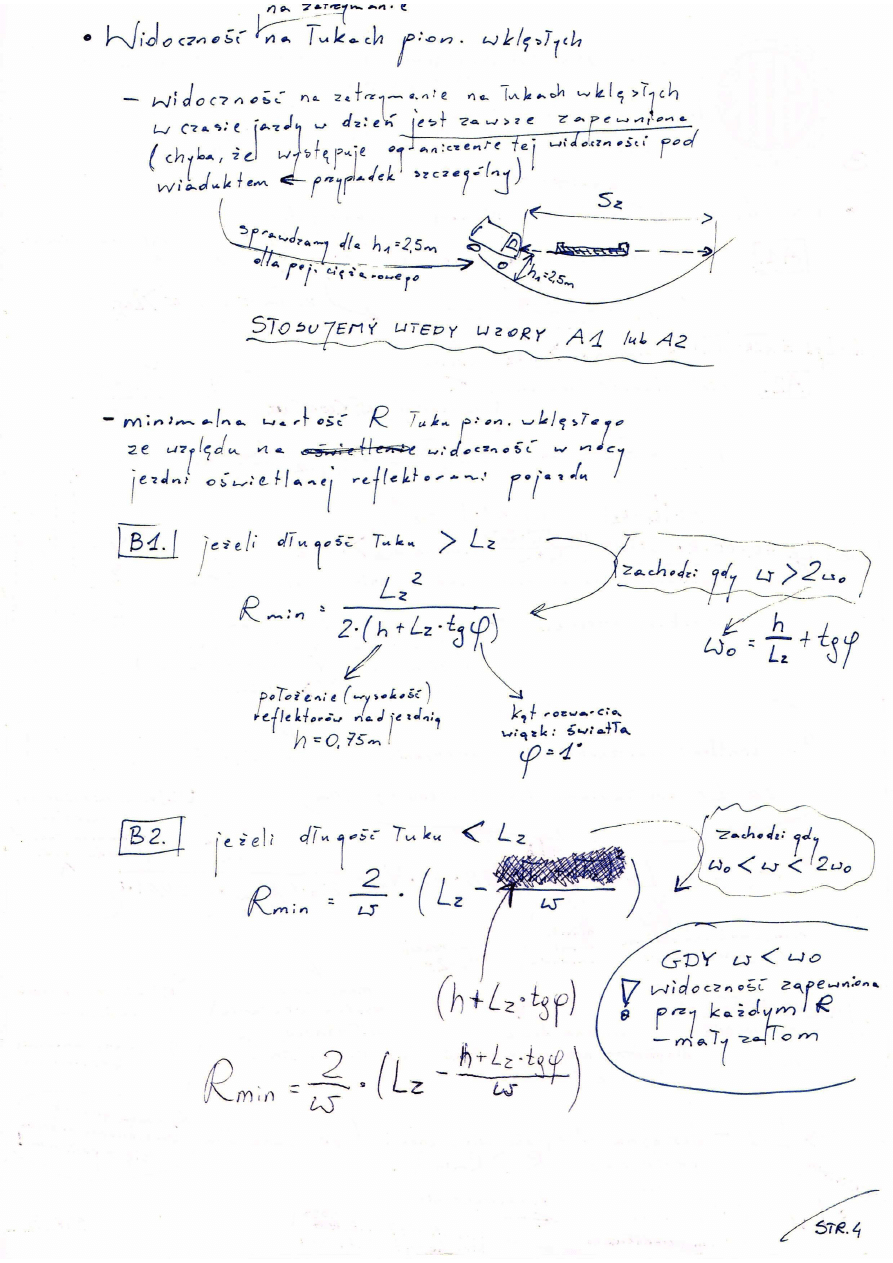 na zatrzymanie
• Widoczność na łukach pion. wklęsłych
- widoczność na zatrzymanie na łukach wklęsłych
w czasie jazdy w dzień jest zawsze zapewniona
(chyba, że występuje ograniczenie tej widoczności pod
wiaduktem ← przypadek szczególny)
Sz
sprawdzamy dla h1=2,5m
dla poj. ciężarowego
h1=2,5m
STOSUJEMY WTEDY WZORY A1 lub A2
- minimalna wartość R łuku pion. wklęsłego
ze względu na oświetlenie widoczność w nocy
jezdni oświetlanej reflektorami pojazdu
B1. jeżeli długość łuku > Lz
zachodzi gdy w > 2wo
Rmin = Lz² / 2·(h + Lz · tgφ)
wo = h/Lz + tgφ
położenie (wysokość)
reflektorów nad jezdnią
h = 0,75m
kąt rozwarcia
wiązki światła
φ = 1°
B2. jeżeli długość łuku < Lz
zachodzi gdy
wo < w < 2wo
Rmin = 2/w · (Lz - /w)
(h + Lz · tgφ)
GDY w < wo
! widoczność zapewniona
przy każdym R
- mały załom
Rmin = 2/w · (Lz - h+Lz·tgφ/w)
STR.4